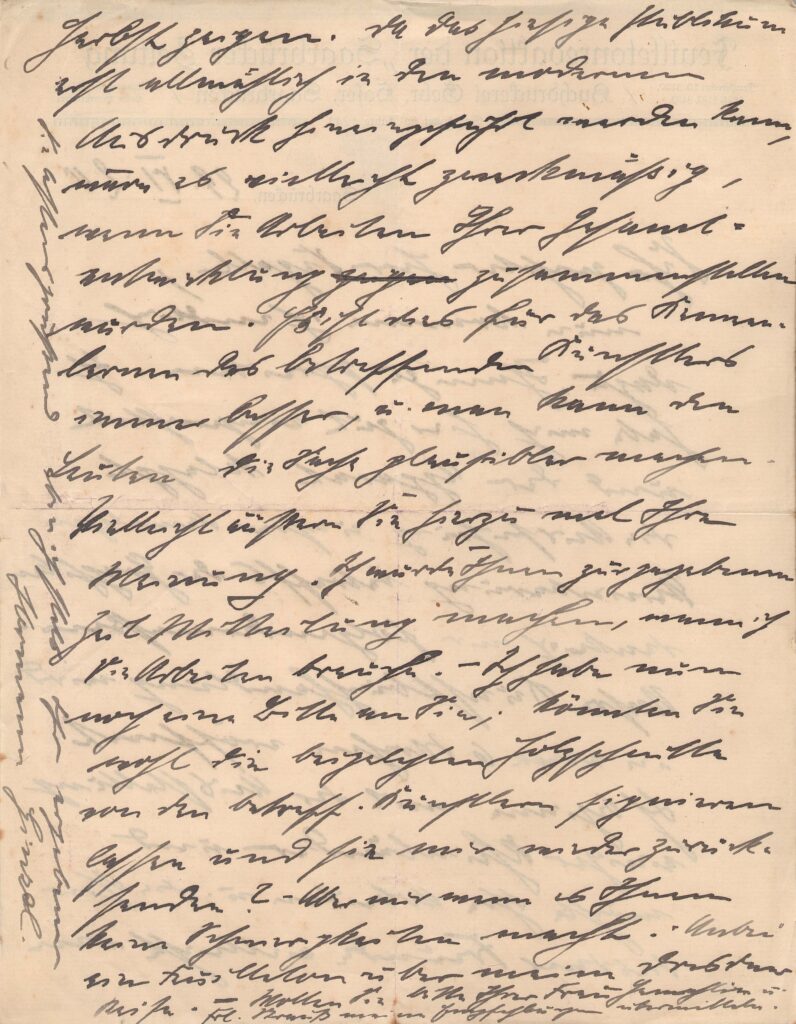 Herbst zeigen. Da das hiesige Publikum
erst allmählich in den modernen
Ausdruck hineingeführt werden kann,
wäre es vielleicht zweckmäßig,
wenn Sie Arbeiten Ihrer Gesamt-
entwicklung zeigen zusammenstellen
würden. Es ist dies für das Kennen-
lernen des betreffenden Künstlers
immer besser, u. man kann den
Leuten die Sache plausibler machen.
Vielleicht äußern Sie hierzu mal Ihre
Meinung. Ich würde Ihnen zur gegebenen
Zeit Mitteilung machen, wann ich
die Arbeiten brauche. – Ich habe nun
noch eine Bitte an Sie; könnten Sie
wohl die beigelegten Holzschnitte
von den betreff. Künstlern signieren
lassen und sie mir wieder zurück-
senden? – Aber nur wenn es Ihnen
keine Schwierigkeiten macht. Anbei
ein Feuilleton über meine Dresdner
Reise. – Wollen Sie bitte Ihrer Frau Gemahlin u.
Frl. meine Empfehlungen übermitteln.
Sie grüßend bin ich stets Ihr ergebener
Hermann